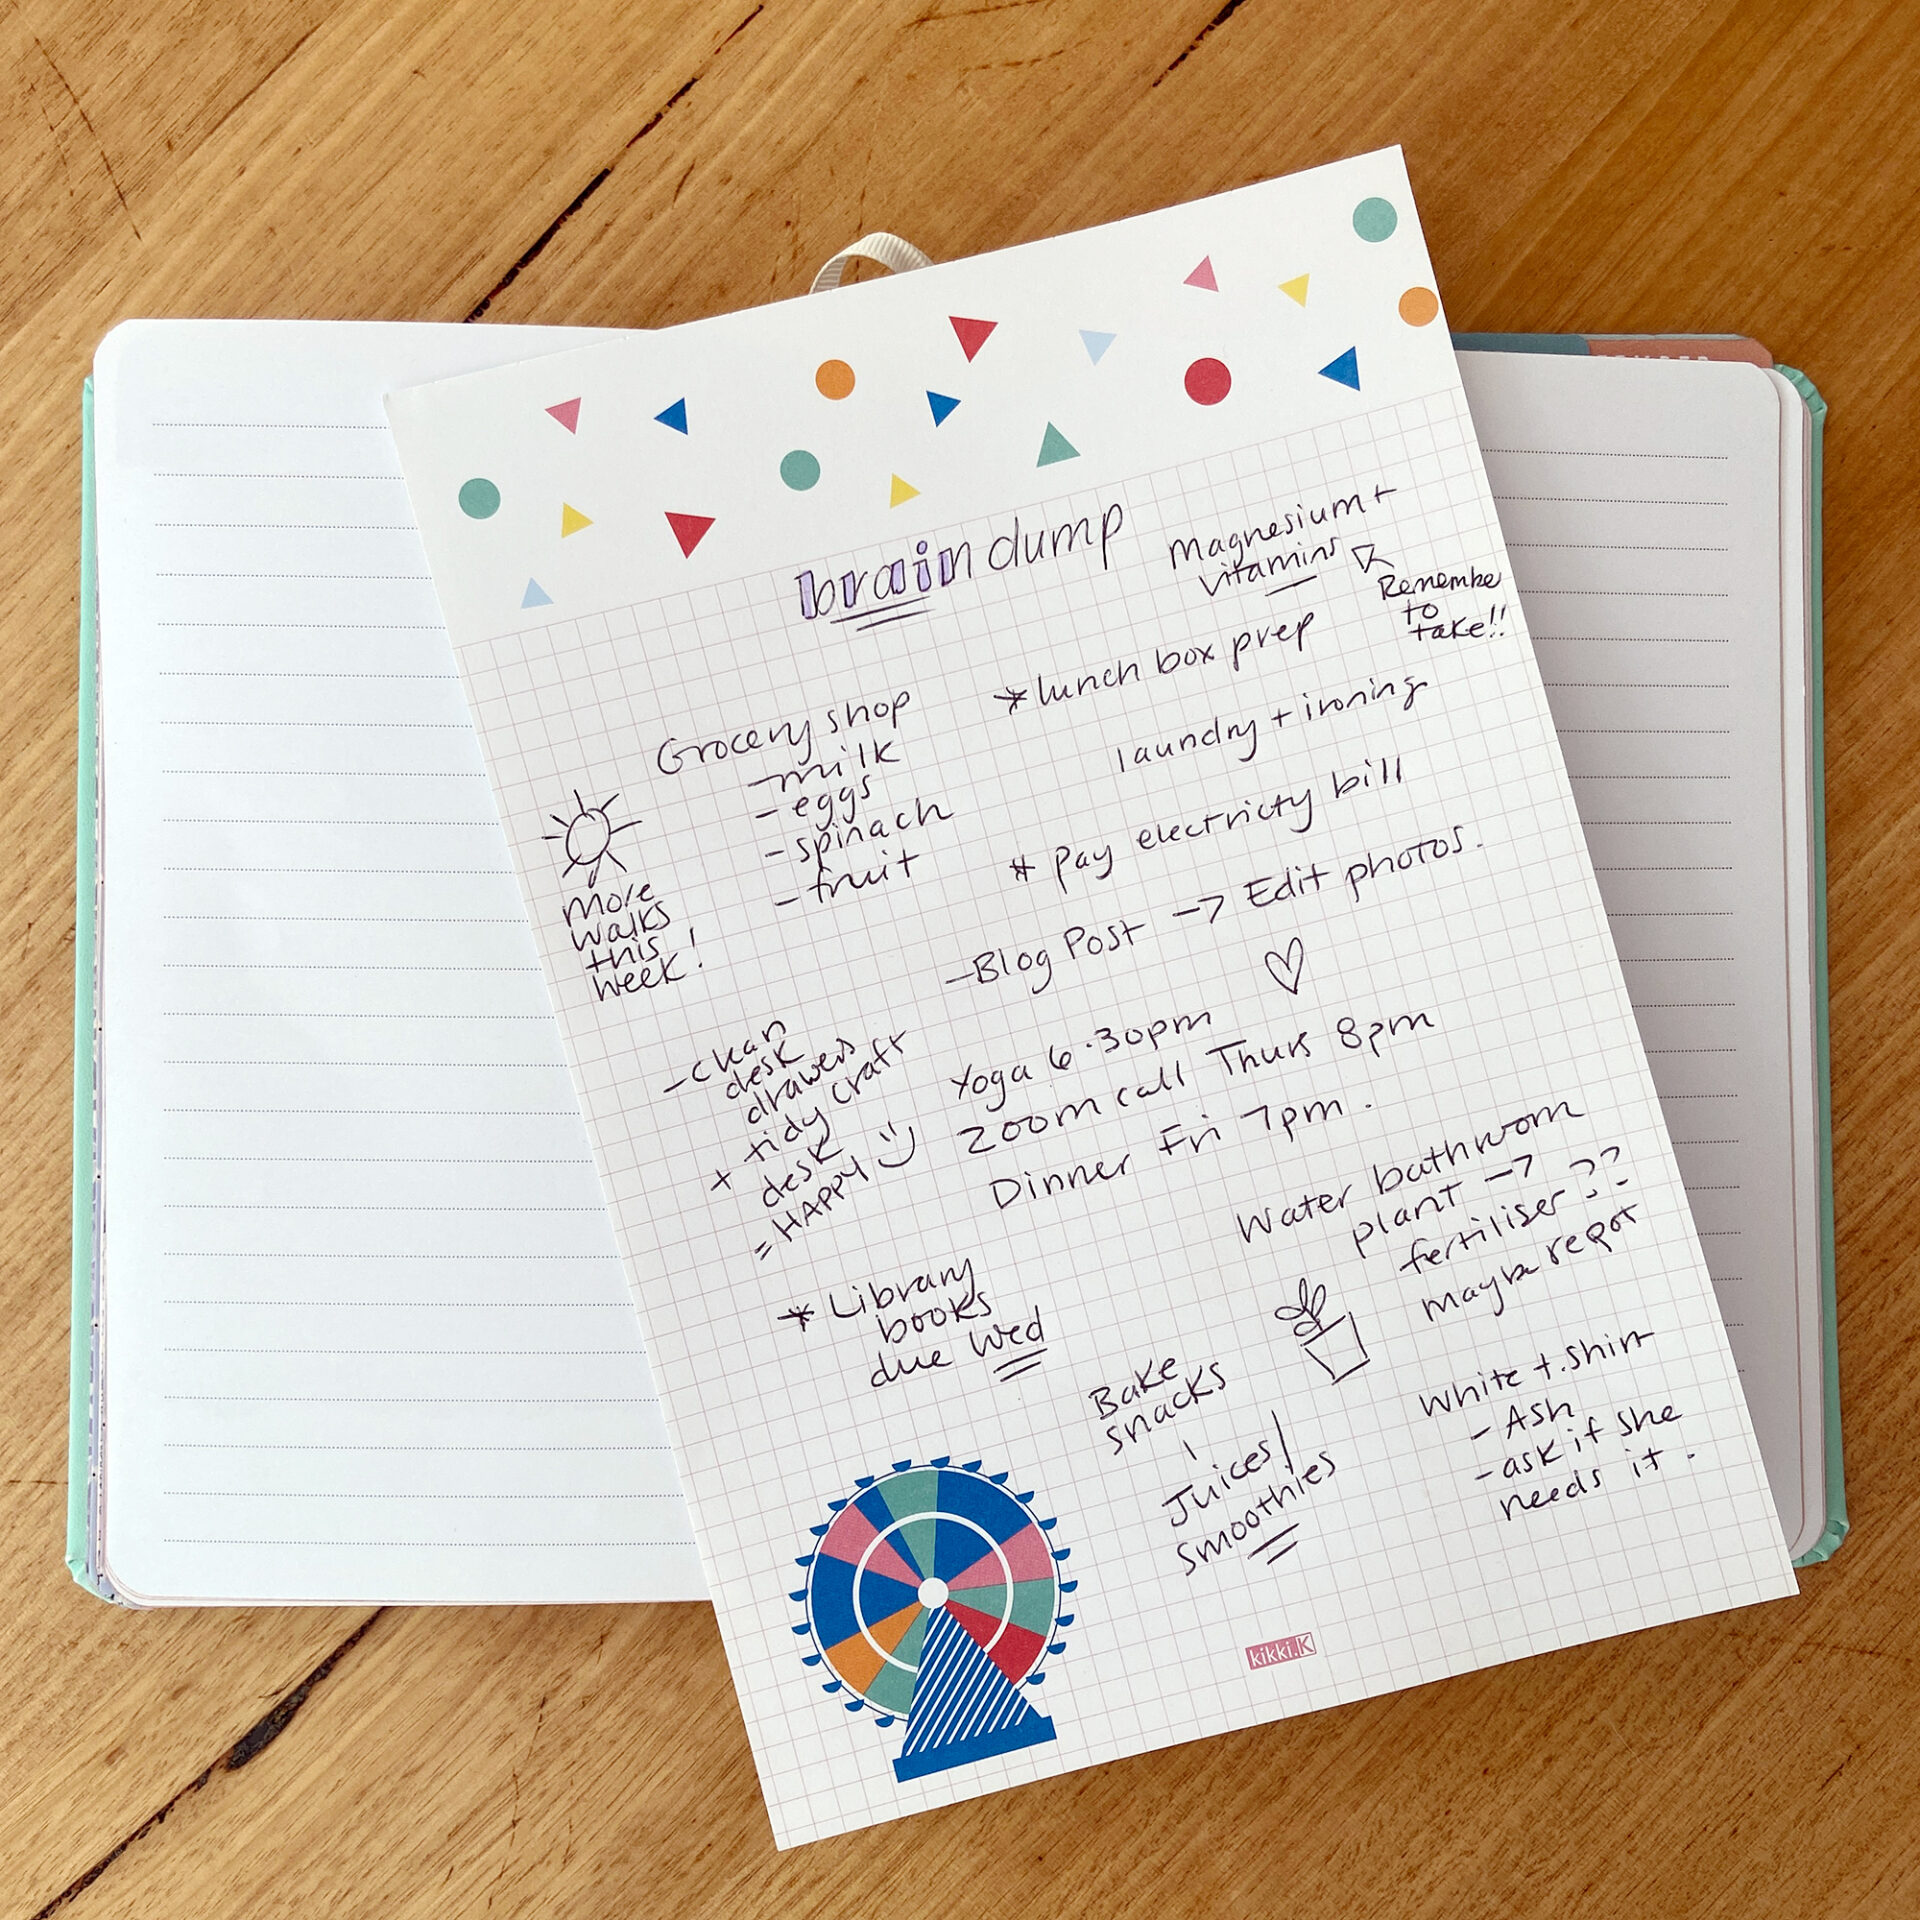 brain dump
Magnesium +
vitamins
Remember
to
take!!
* lunch box prep
laundry + ironing
Grocery shop
- milk
- eggs
- spinach
- fruit
* pay electricty bill
more
walks
this
week!
- Blog Post -> Edit photos.
- clean
desk
drawers
+ tidy craft
desk
= HAPPY
Yoga 6.30pm
zoom call Thurs 8pm
Dinner Fri 7pm.
Water bathroom
plant ->
fertiliser ??
maybe repot
* Library
books
due Wed
Bake
snacks
Juices/
smoothies
White t.shirt
- Ash
- ask if she
needs it.
kikki.K